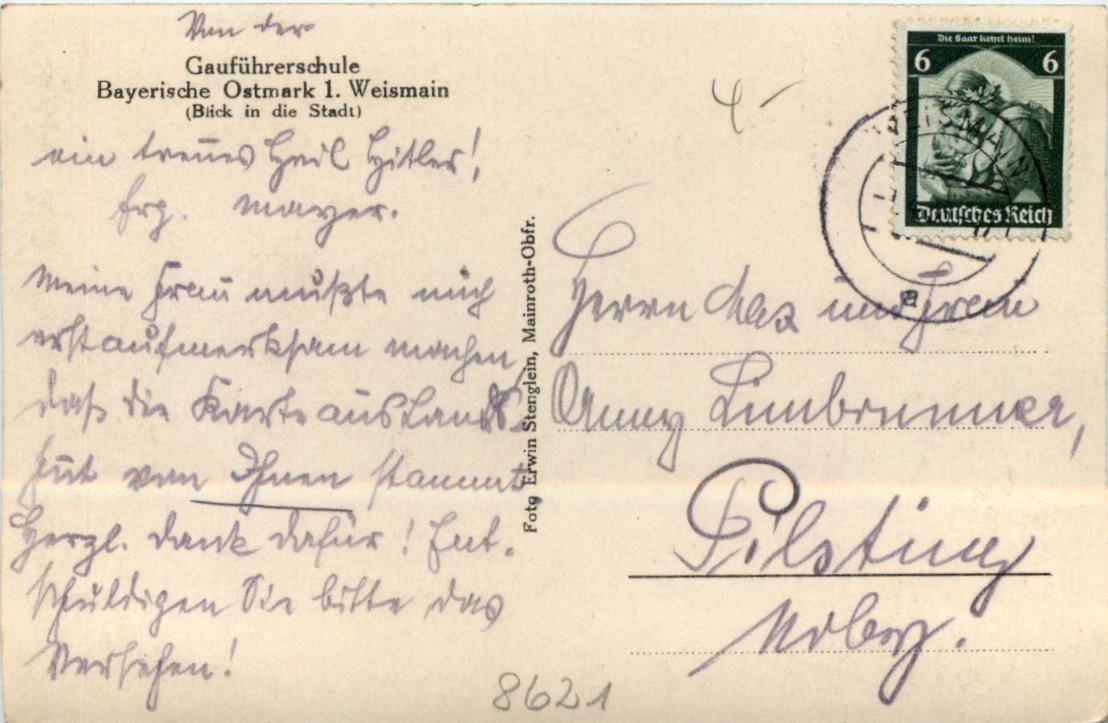 Von der
Gauführerschule
Bayerische Ostmark 1. Weismain
(Blick in die Stadt)
ein treues Heil Hitler!
Frz. Mayer.
Meine Frau mußte mich
erst aufmerksam machen,
daß die Karte aus Lands
hut von Ihnen stammt.
Herzl. Dank dafür! Ent-
schuldigen Sie bitte das
Versehen!
Foto Erwin Stenglein, Mainroth-Obfr.
4-
Die Saar kehrt heim!
6 6
Deutsches Reich
WEISMAIN
a
Herrn Max und Frau
Anny Limbrunner,
Pilsting
Ndby.
8621